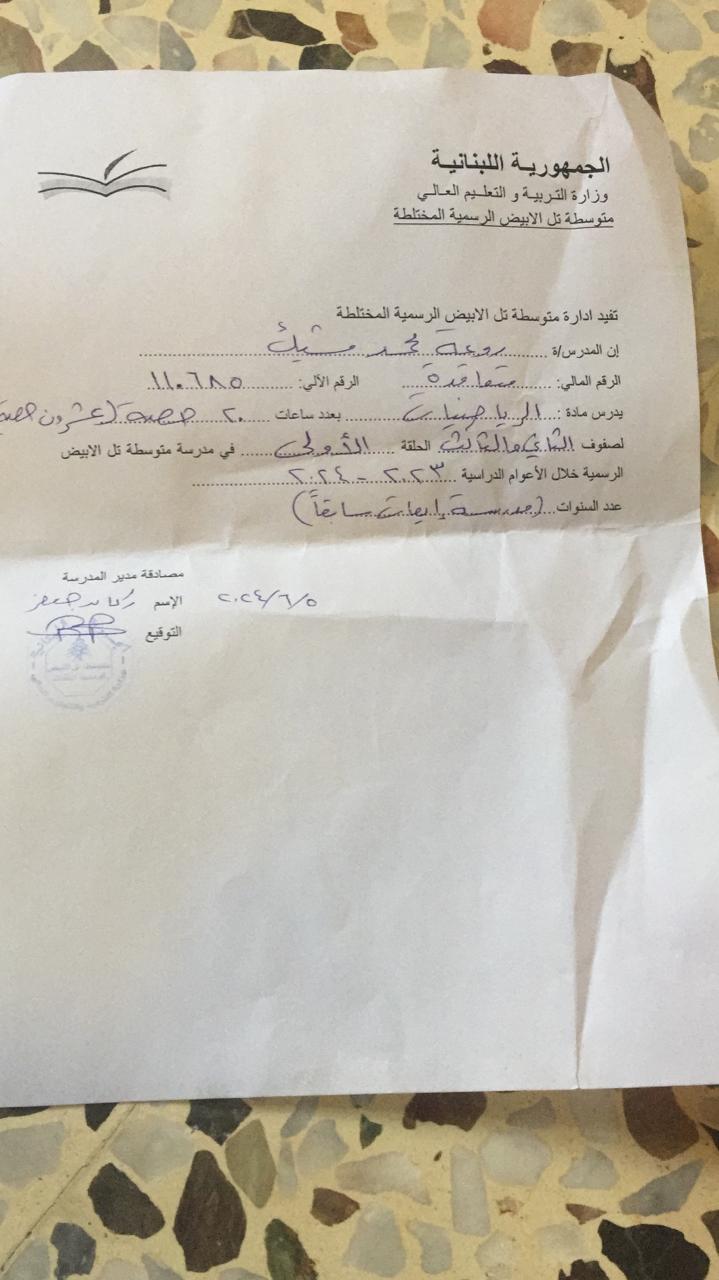 الجمهورية اللبنانية
وزارة التربية و التعليم العالي
متوسطة تل الابيض الرسمية المختلطة
تفيد ادارة متوسطة تل الابيض الرسمية المختلطة
إن المدرس/ة ..... روعة محمد مشيك .....
الرقم المالي: .... متعاقدة .... الرقم الآلي: .... ١١٠٦٨٥
يدرس مادة : .... الرياضيات .... بعدد ساعات .... ٢٠ حصة (عشرون حصة
لصفوف الثاني والثالث الحلقة .... الأولى .... في مدرسة متوسطة تل الابيض
الرسمية خلال الأعوام الدراسية ٢٠٢٣ - ٢٠٢٤ ....
عدد السنوات .... (مدرسة إيعات سابقاً)
مصادقة مدير المدرسة
الإسم ٢٠٢٤/٦/٥
التوقيع